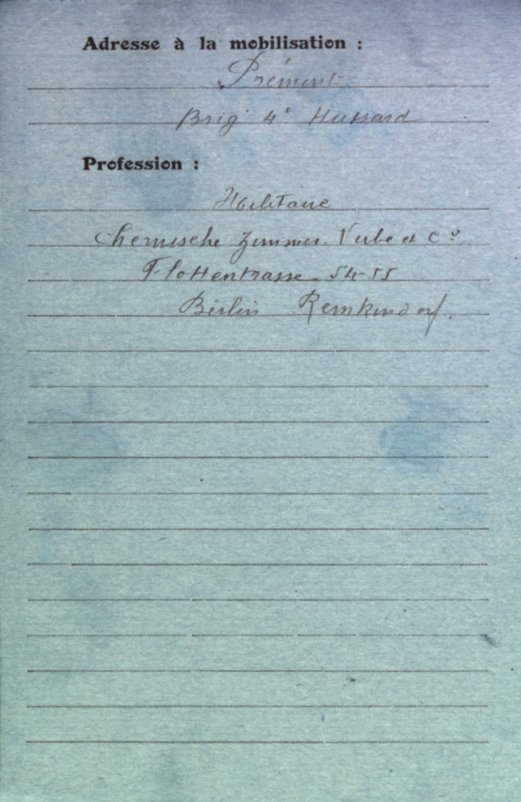 Adresse à la mobilisation :
Prémont
Brig 4° Hussard
Profession :
Militaire
Chemische Zimmer. Verbe et C°
Flottenstrasse 54-55
Berlin Remkendorf.